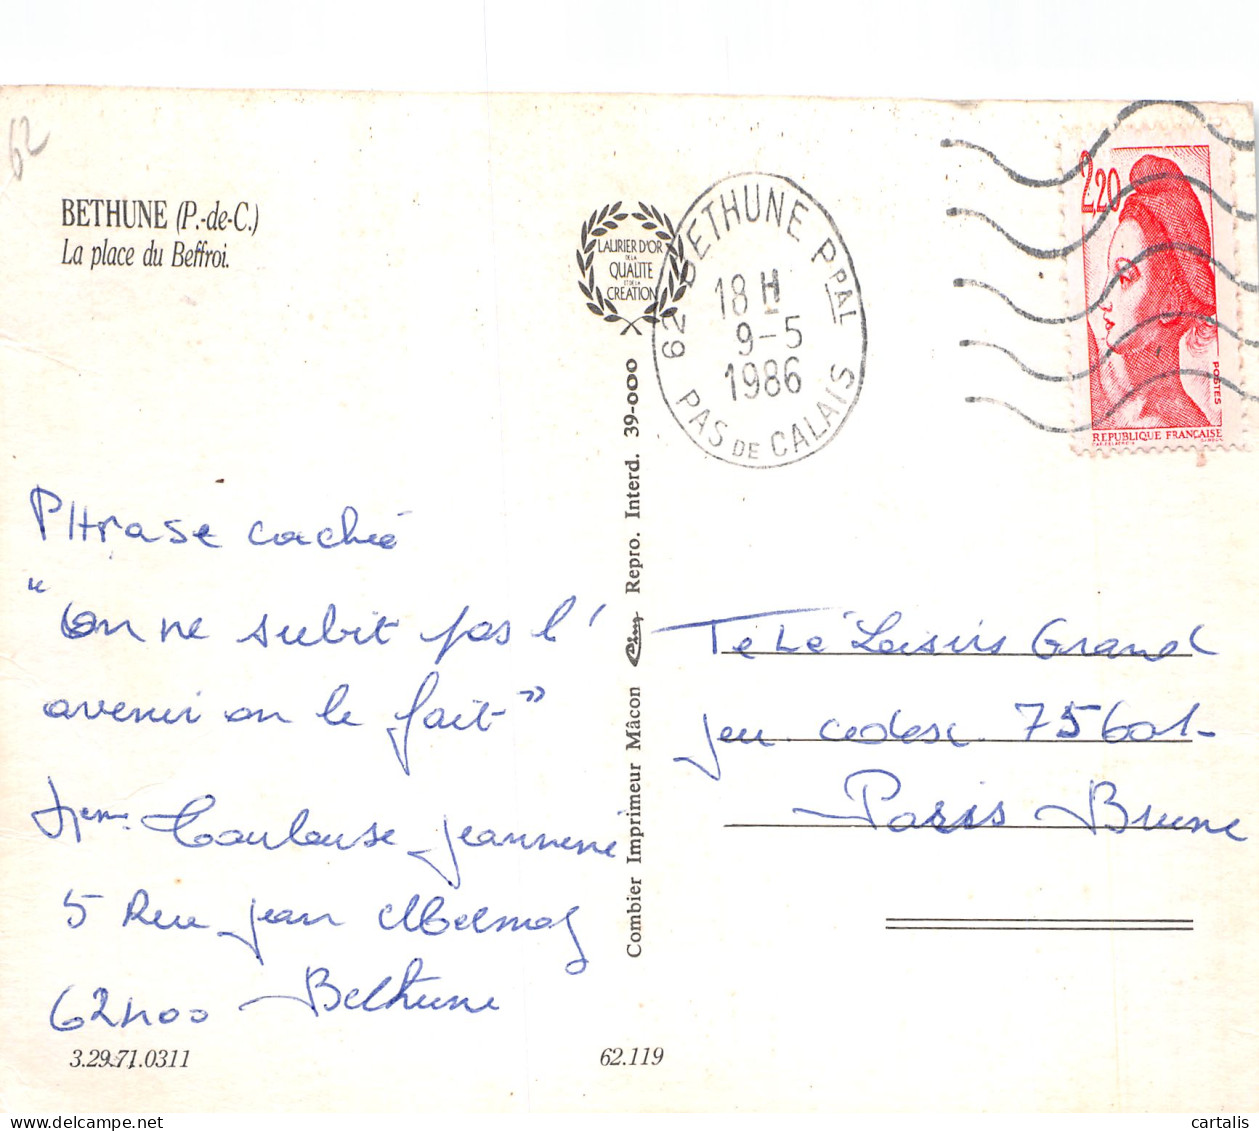 62
BETHUNE (P.-de-C.)
La place du Beffroi.
LAURIER D'OR
DE LA
QUALITE
ET DE LA
CREATION
62 BETHUNE PPAL
18 H
9-5
1986
PAS DE CALAIS
2,20
POSTES
REPUBLIQUE FRANÇAISE
Combier Imprimeur Mâcon Repro. Interd. 39-000
PHrase cachée
"On ne subit pas l'
avenir on le fait"
Toulouse Jeannine
5 Rue Jean Mermoz
62400 Bethune
Télé Loisirs Grand
jeu cedex 75601
Paris Brune
3.29.71.0311
62.119
cartalis
www.delcampe.net